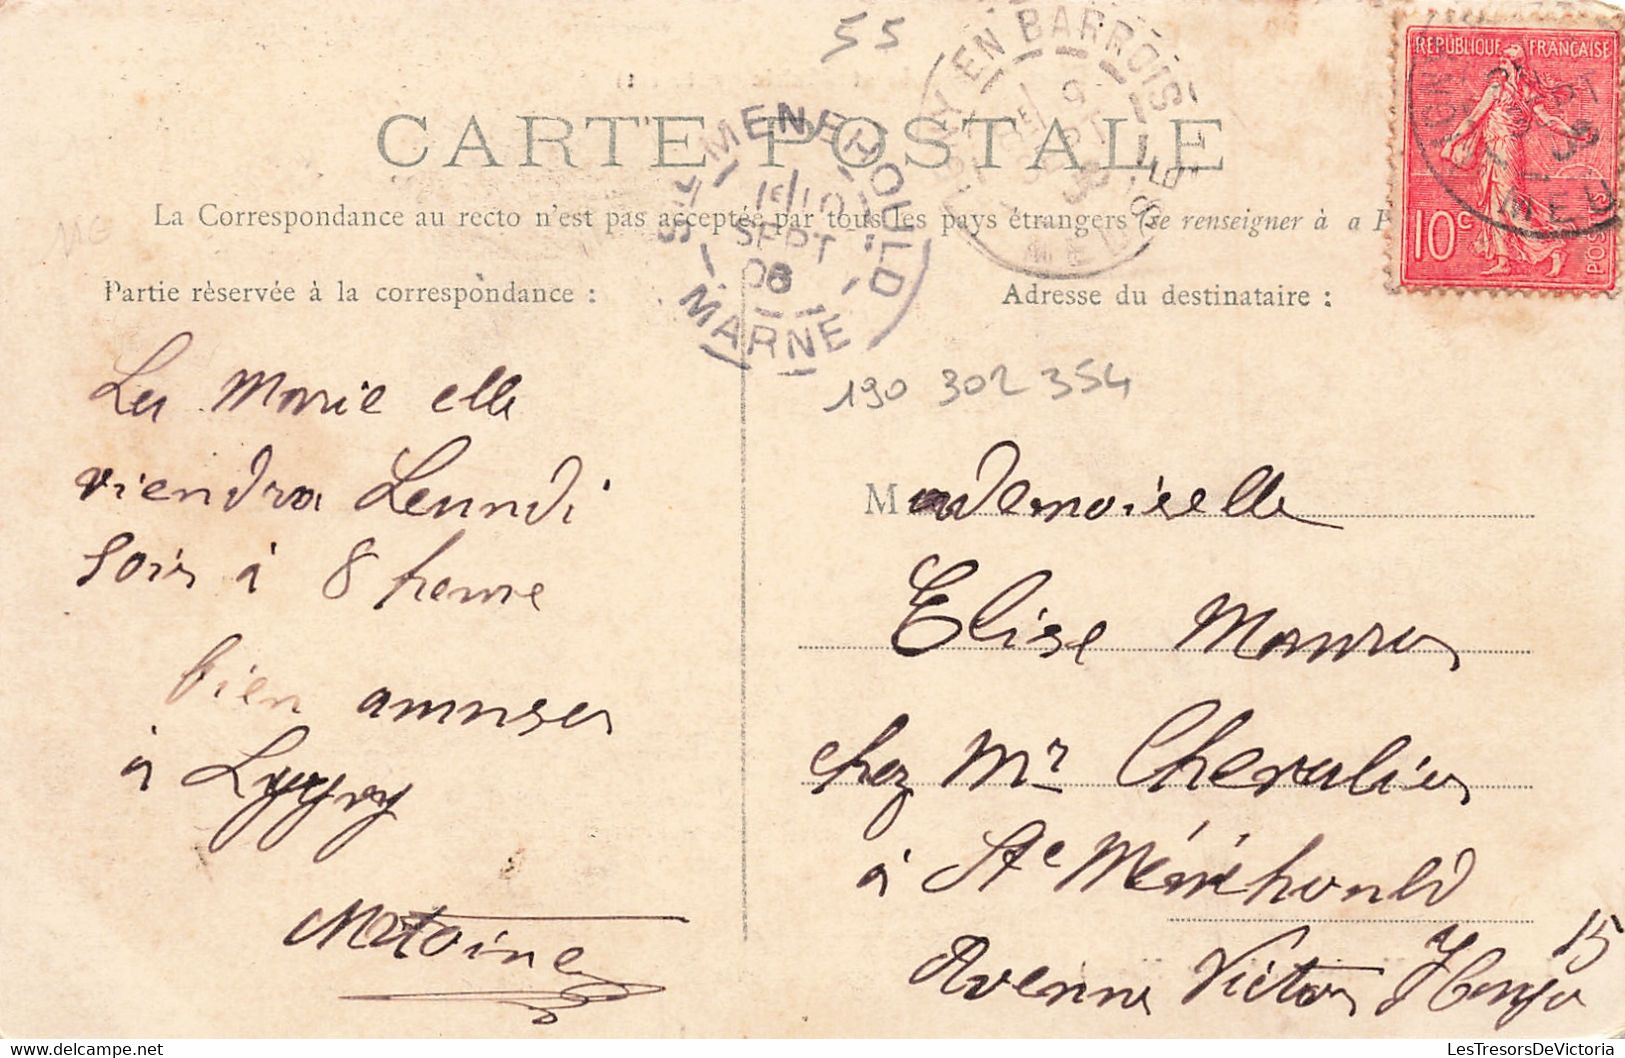 55
RÉPUBLIQUE FRANÇAISE
10c
POSTES
EN BARROIS
CARTE POSTALE
La Correspondance au recto n'est pas acceptée par tous les pays étrangers (Se renseigner à
Partie réservée à la correspondance :
Adresse du destinataire :
STE MENEHOULD
1E/10
SEPT
08
MARNE
190 302 354
Marie elle
viendra Leundi
soir à 8 heure
bien amuser
à
Mademoiselle
Elise
chez Mr Chevalier
à Ste Ménéhould
Avenue Victor Hugo 15
LesTresorsDeVictoria